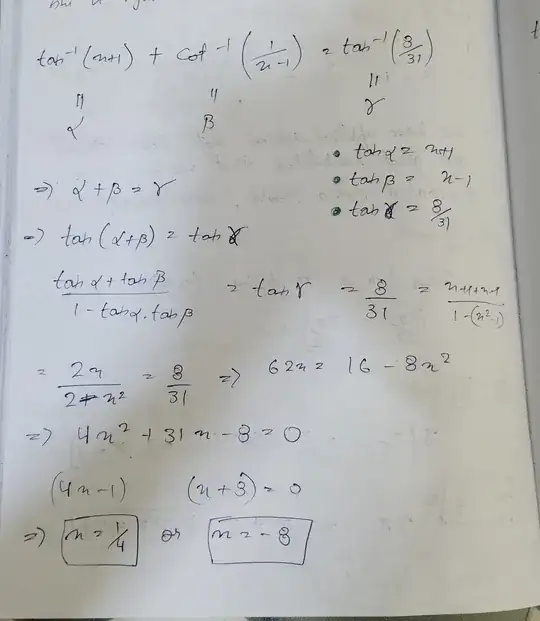 tan⁻¹(x+1) + cot⁻¹(1/(x-1)) = tan⁻¹(8/31)
|| || ||
α β γ
• tanα = x+1
⇒ α+β = γ
• tanβ = x-1
• tanγ = 8/31
⇒ tan(α+β) = tanγ
(tanα + tanβ)/(1 - tanα.tanβ) = tanγ = 8/31 = (x+1+x-1)/(1-(x²-1))
= 2x/(2-x²) = 8/31 ⇒ 62x = 16 - 8x²
⇒ 4x² + 31x - 8 = 0
(4x-1) (x+8) = 0
⇒ x = 1/4 or x = -8